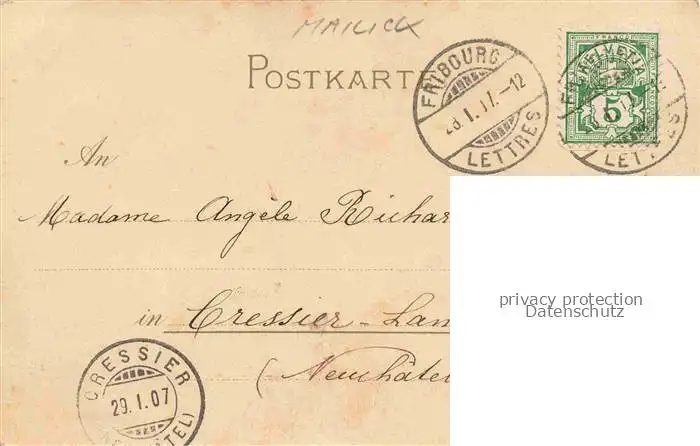 MAILICK
POSTKARTE
FRIBOURG
28.I.07.-12
LETTRES
HELVETIA
FRANCO
5
LETT
An
Madame Angèle Richar
in Cressier-Lan
(Neuchâtel
privacy protection
Datenschutz
CRESSIER
29.I.07